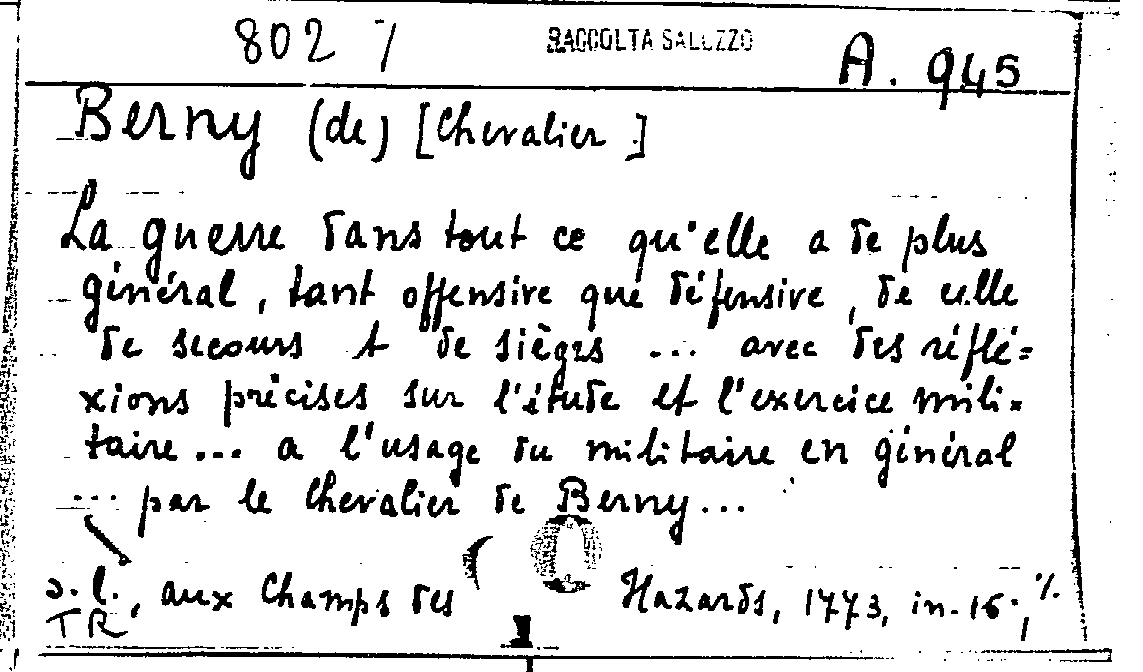 802 7 RACCOLTA SALUZZO A. 945
Berny (de) [Chevalier]
La guerre dans tout ce qu'elle a de plus
général, tant offensive que défensive, de celle
de secours et de sièges ... avec des réflé=
xions précises sur l'étude et l'exercice mili=
taire... a l'usage du militaire en général
... par le Chevalier de Berny...
s.l., aux Champs des Hazards, 1773, in-16., %.
TR